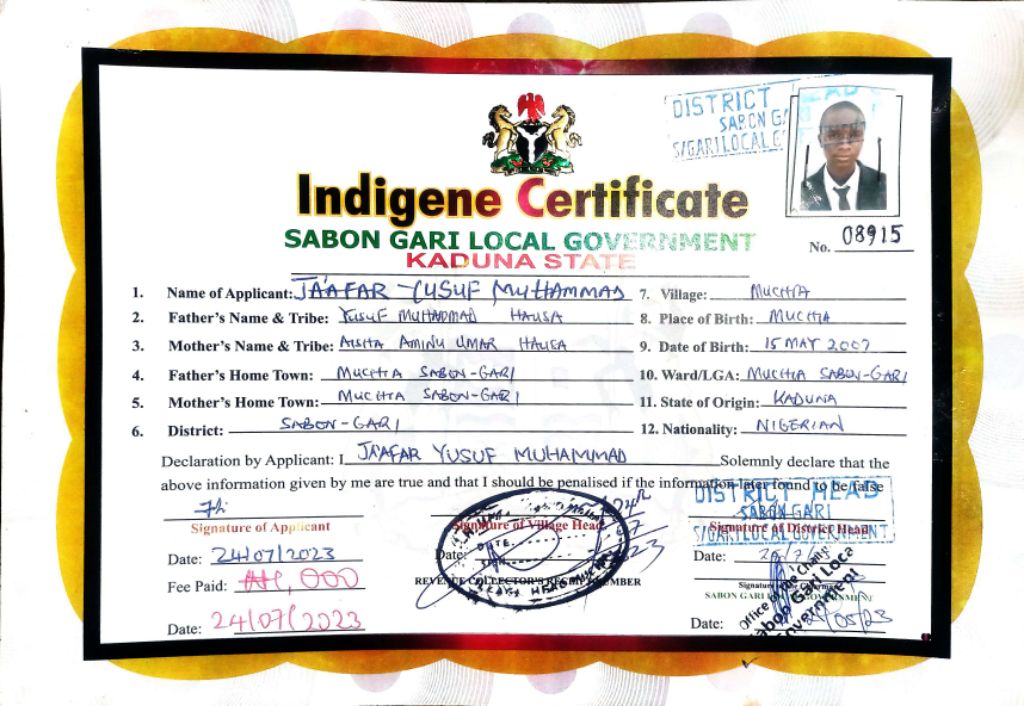 DISTRICT HEAD
SABON GA
S/GARI LOCAL G
Indigene Certificate
SABON GARI LOCAL GOVERNMENT
KADUNA STATE
No. 08915
1. Name of Applicant: JA'AFAR YUSUF MUHAMMAD
7. Village: MUCHIA
2. Father's Name & Tribe: YUSUF MUHAMMAD HAUSA
8. Place of Birth: MUCHIA
3. Mother's Name & Tribe: AISHA AMINU UMAR HAUSA
9. Date of Birth: 15 MAY 2007
4. Father's Home Town: MUCHIA SABON-GARI
10. Ward/LGA: MUCHIA SABON-GARI
5. Mother's Home Town: MUCHIA SABON-GARI
11. State of Origin: KADUNA
6. District: SABON-GARI
12. Nationality: NIGERIAN
Declaration by Applicant: I JA'AFAR YUSUF MUHAMMAD Solemnly declare that the
above information given by me are true and that I should be penalised if the information later found to be false
DISTRICT HEAD
SABON GARI
S/GARI LOCAL GOVERNMENT
Signature of Applicant
Signature of Village Head
Signature of District Head
Date: 24/07/2023
Date:
DATE
Date:
Fee Paid: ₦1,000
REVENUE COLLECTOR'S
Signature
SABON GARI
Office of the Chairman
Sabon Gari Local
Government
Date: 24/07/2023
Date: